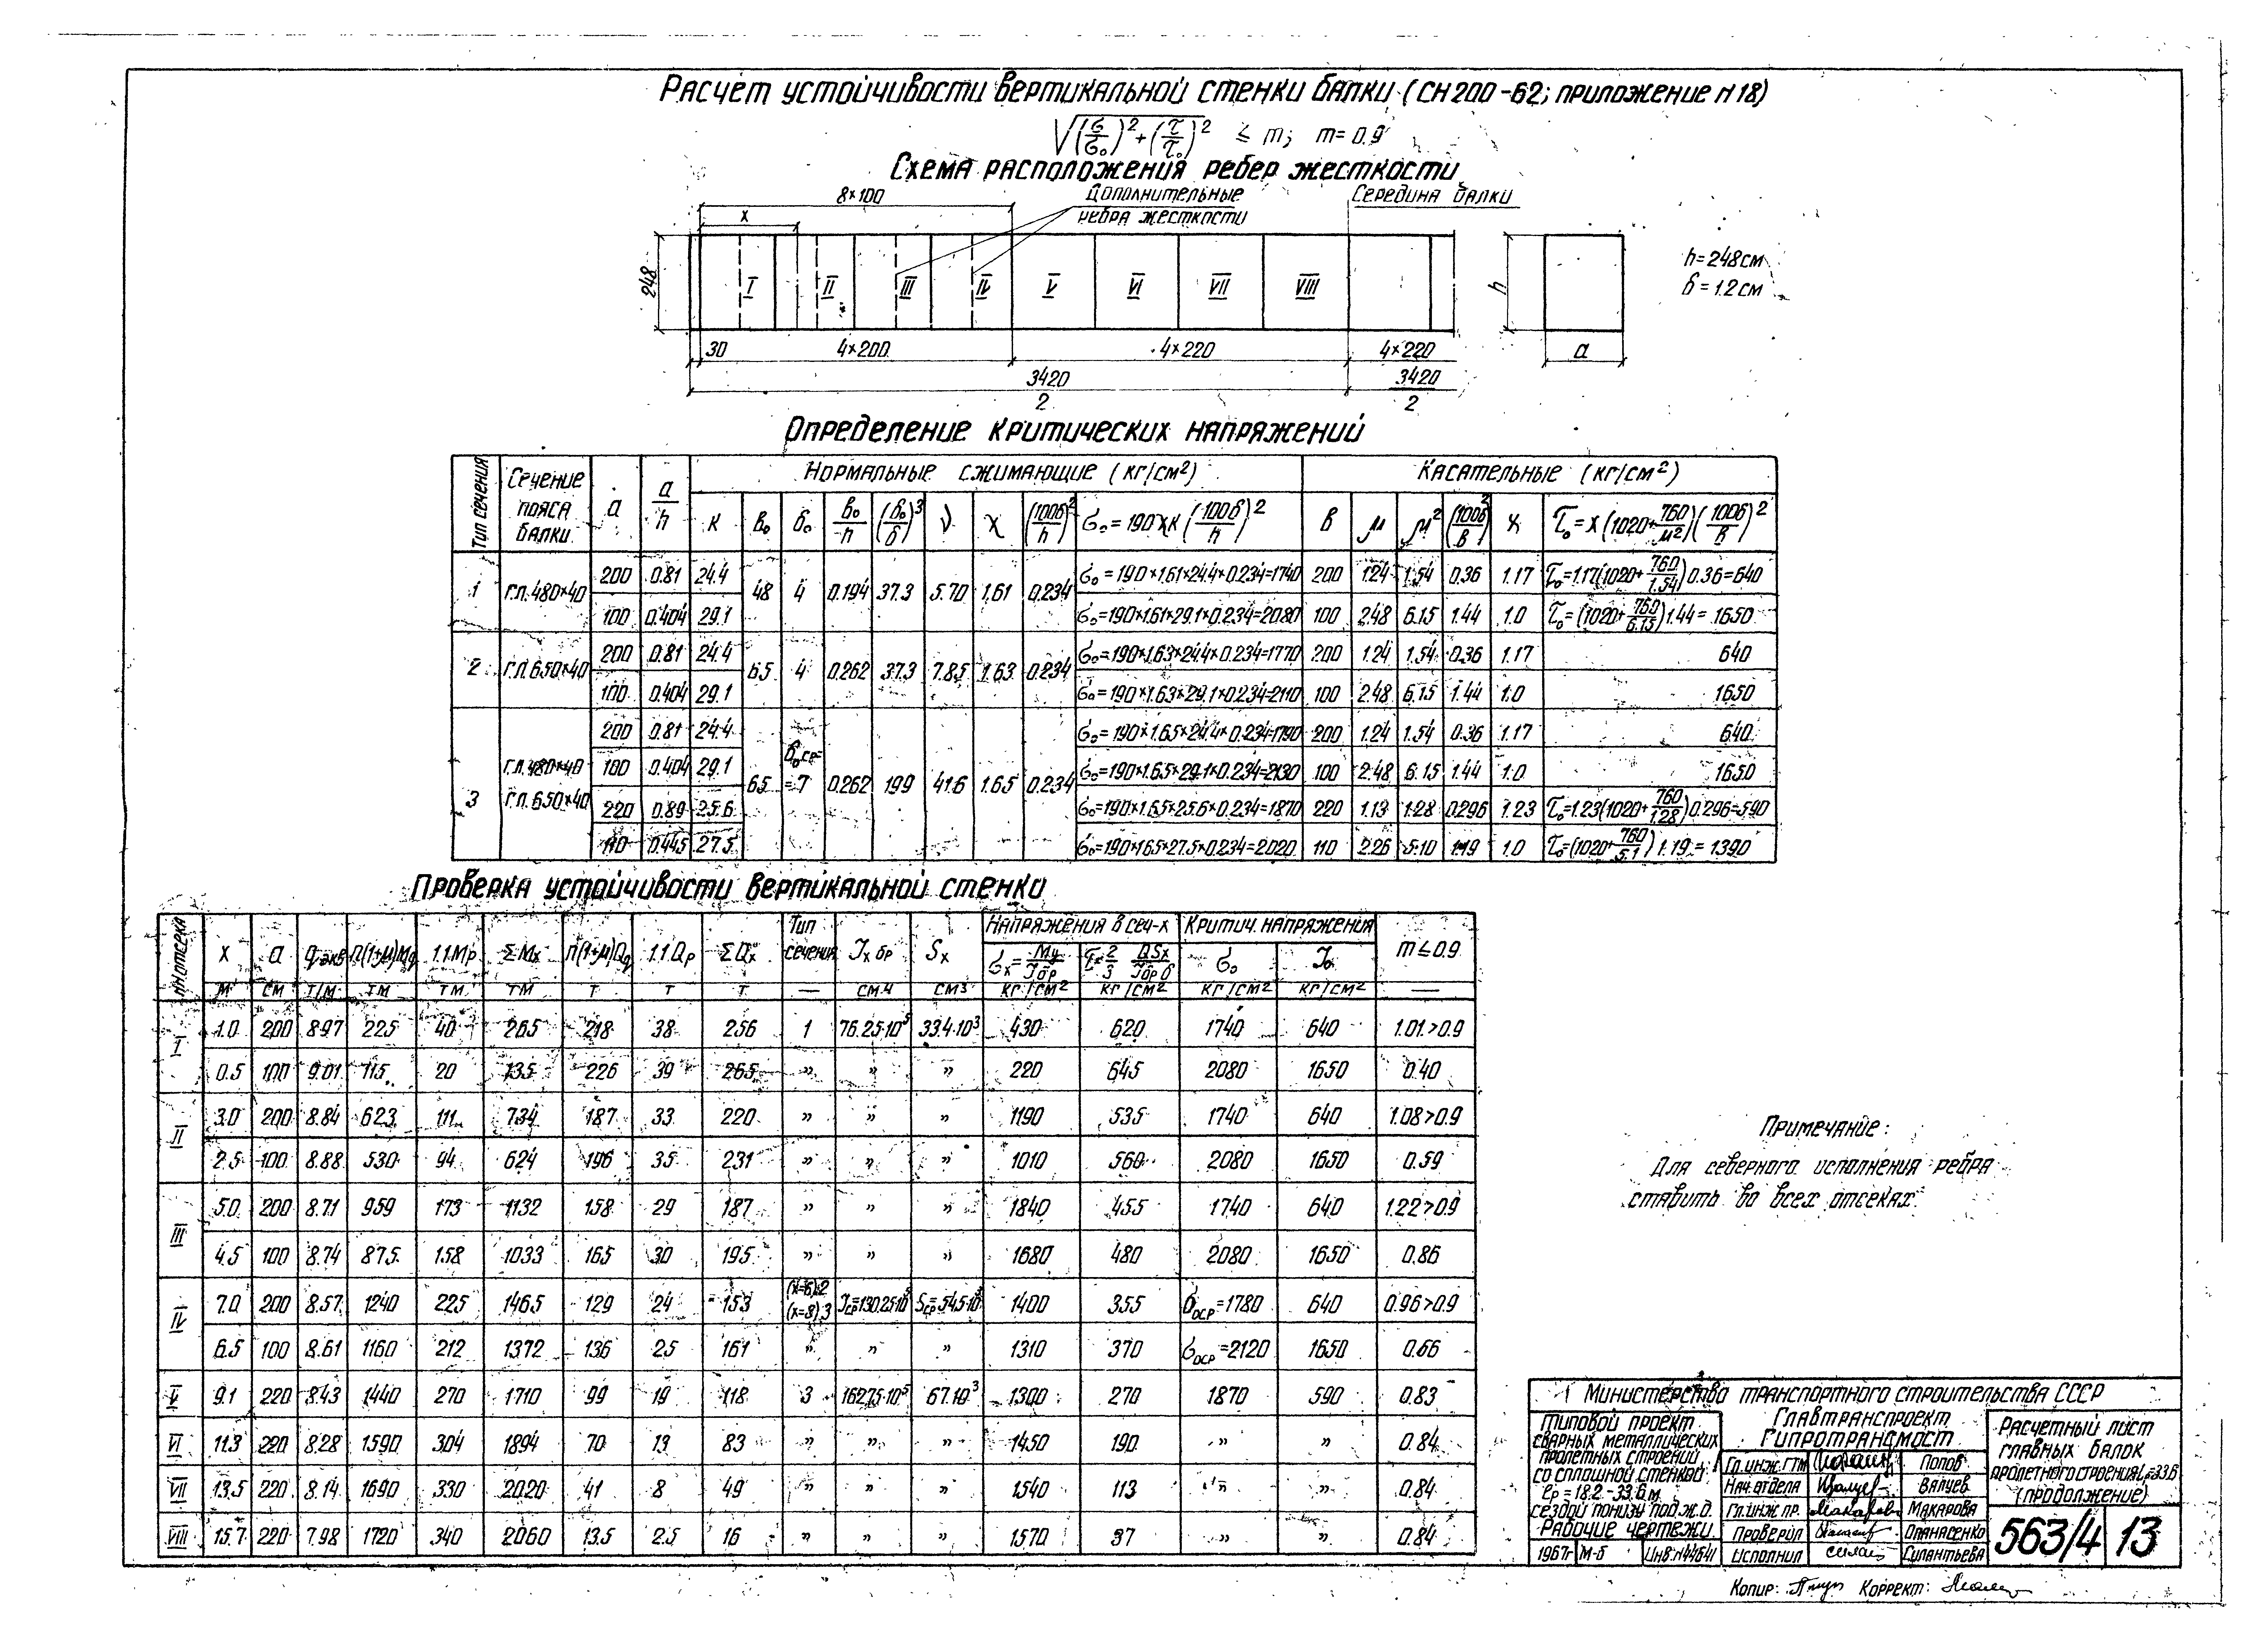 Расчет устойчивости вертикальной стенки балки (СН 200-62; приложение N 18)
√(σ/σ₀)²+(τ/τ₀)² ≤ m; m=0.9
Схема расположения ребер жесткости
8×100 Дополнительные ребра жесткости Середина балки
x
248 I II III IV V VI VII VIII h
h=248см
δ=1.2см
30 4×200 4×220 4×220 a
3420/2 3420/2
Определение критических напряжений
Тип сечения Сечение пояса балки a a/h Нормальные сжимающие (кг/см²) Касательные (кг/см²)
K в₀ δ₀ в₀/h (δ₀/δ)³ ν χ (100δ/h)² σ₀=190χK(100δ/h)² в μ μ² (100δ/в)² χ τ₀=χ(1020+760/μ²)(100δ/в)²
1 г.л.480×40 200 0.81 24.4 48 4 0.194 37.3 5.70 1.61 0.234 σ₀=190×1.61×24.4×0.234=1740 200 1.24 1.54 0.36 1.17 τ₀=1.17(1020+760/1.54)0.36=640
100 0.404 29.1 σ₀=190×1.61×29.1×0.234=2080 100 2.48 6.15 1.44 1.0 τ₀=(1020+760/6.15)1.44=1650
2 г.л.650×40 200 0.81 24.4 65 4 0.262 37.3 7.85 1.63 0.234 σ₀=190×1.63×24.4×0.234=1770 200 1.24 1.54 0.36 1.17 640
100 0.404 29.1 σ₀=190×1.63×29.1×0.234=2110 100 2.48 6.15 1.44 1.0 1650
3 г.л.480×40 г.л.650×40 200 0.81 24.4 65 δ₀ср=7 0.262 199 41.6 1.65 0.234 σ₀=190×1.65×24.4×0.234=1790 200 1.24 1.54 0.36 1.17 640
100 0.404 29.1 σ₀=190×1.65×29.1×0.234=2130 100 2.48 6.15 1.44 1.0 1650
220 0.89 25.6 σ₀=190×1.65×25.6×0.234=1870 220 1.13 1.28 0.296 1.23 τ₀=1.23(1020+760/1.28)0.296=590
110 0.445 27.5 σ₀=190×1.65×27.5×0.234=2020 110 2.26 5.10 1.19 1.0 τ₀=(1020+760/5.1)1.19=1390
Проверка устойчивости вертикальной стенки
NN отсека x a qэкв n(1+μ)Mq 1.1Mр ΣMx n(1+μ)Qq 1.1Qр ΣQx Тип сечения Jx бр Sx Напряжения в сеч-x Критич. напряжения m≤0.9
σx=My/Jбр τ=2/3 QSx/Jбр δ σ₀ τ₀
м см т/м тм тм тм т т т — см4 см3 кг/см² кг/см² кг/см² кг/см² —
I 1.0 200 8.97 225 40 265 218 38 256 1 76.25·10⁵ 33.4·10³ 430 620 1740 640 1.01>0.9
0.5 100 9.01 115 20 135 226 39 265 » » » 220 645 2080 1650 0.40
II 3.0 200 8.84 623 111 734 187 33 220 » » » 1190 535 1740 640 1.08>0.9
2.5 100 8.88 530 94 624 196 35 231 » » » 1010 560 2080 1650 0.59
III 5.0 200 8.71 959 173 1132 158 29 187 » » » 1840 455 1740 640 1.22>0.9
4.5 100 8.74 875 158 1033 165 30 195 » » » 1680 480 2080 1650 0.86
IV 7.0 200 8.57 1240 225 1465 129 24 153 (x=6);2 (x=8);3 Jср=130.25·10⁵ Sср=54.5·10³ 1400 355 σоср=1780 640 0.96>0.9
6.5 100 8.61 1160 212 1372 136 25 161 » » » 1310 370 σоср=2120 1650 0.66
V 9.1 220 8.43 1440 270 1710 99 19 118 3 162.75·10⁵ 67·10³ 1300 270 1870 590 0.83
VI 11.3 220 8.28 1590 304 1894 70 13 83 » » » 1450 190 » » 0.84
VII 13.5 220 8.14 1690 330 2020 41 8 49 » » » 1540 113 » » 0.84
VIII 15.7 220 7.98 1720 340 2060 13.5 2.5 16 » » » 1570 37 » » 0.84
Примечание:
Для северного исполнения ребра
ставить во всех отсеках.
Министерство транспортного строительства СССР
Типовой проект
сварных металлических
пролетных строений
со сплошной стенкой
ℓр=18.2-33.6м
с ездой понизу под ж.д.
Рабочие чертежи
1967г М-б Инв.N44641
Главтранспроект
Гипротрансмост
Гл.инж.ГТМ Попов
Нач.отдела Валуев
Гл.инж.пр. Макарова
Проверил Опанасенко
Исполнил Силантьева
Расчетный лист
главных балок
пролетного строения Lр=33.6
(продолжение)
563/4 13
Копир: Коррект: